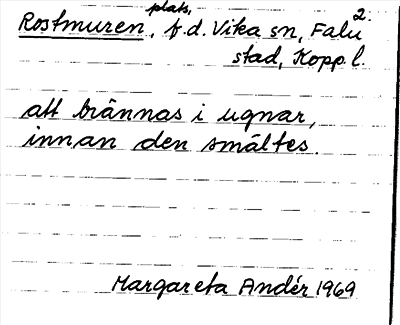 2.
Rostmuren, plats, f.d. Vika sn, Falu
stad, Kopp. l.
att brännas i ugnar,
innan den smältes.
Margareta Andér 1969